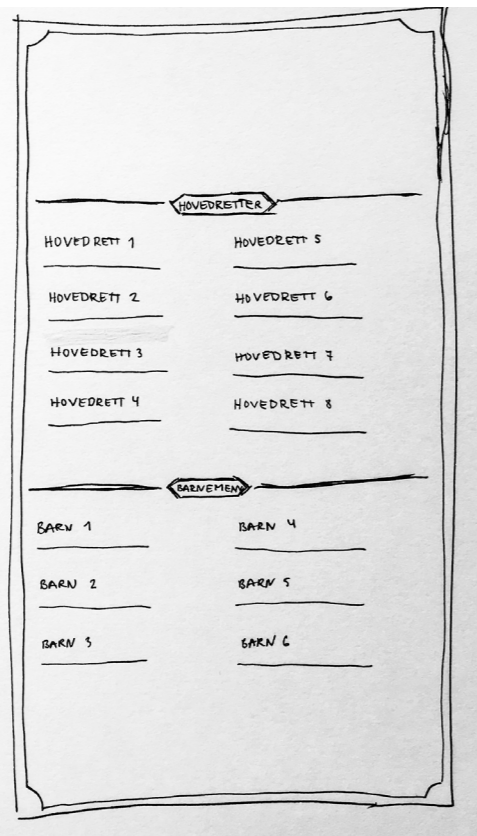 HOVEDRETTER
HOVEDRETT 1
HOVEDRETT 2
HOVEDRETT 3
HOVEDRETT 4
HOVEDRETT 5
HOVEDRETT 6
HOVEDRETT 7
HOVEDRETT 8
BARNEMENY
BARN 1
BARN 2
BARN 3
BARN 4
BARN 5
BARN 6